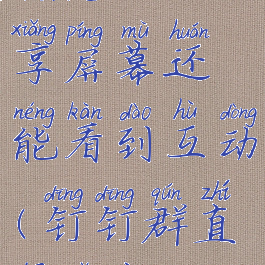 xiǎng píng mù huán
享屏幕还
néng kàn dào hù dòng
能看到互动
dīng dīng qún zhí
(钉钉群直